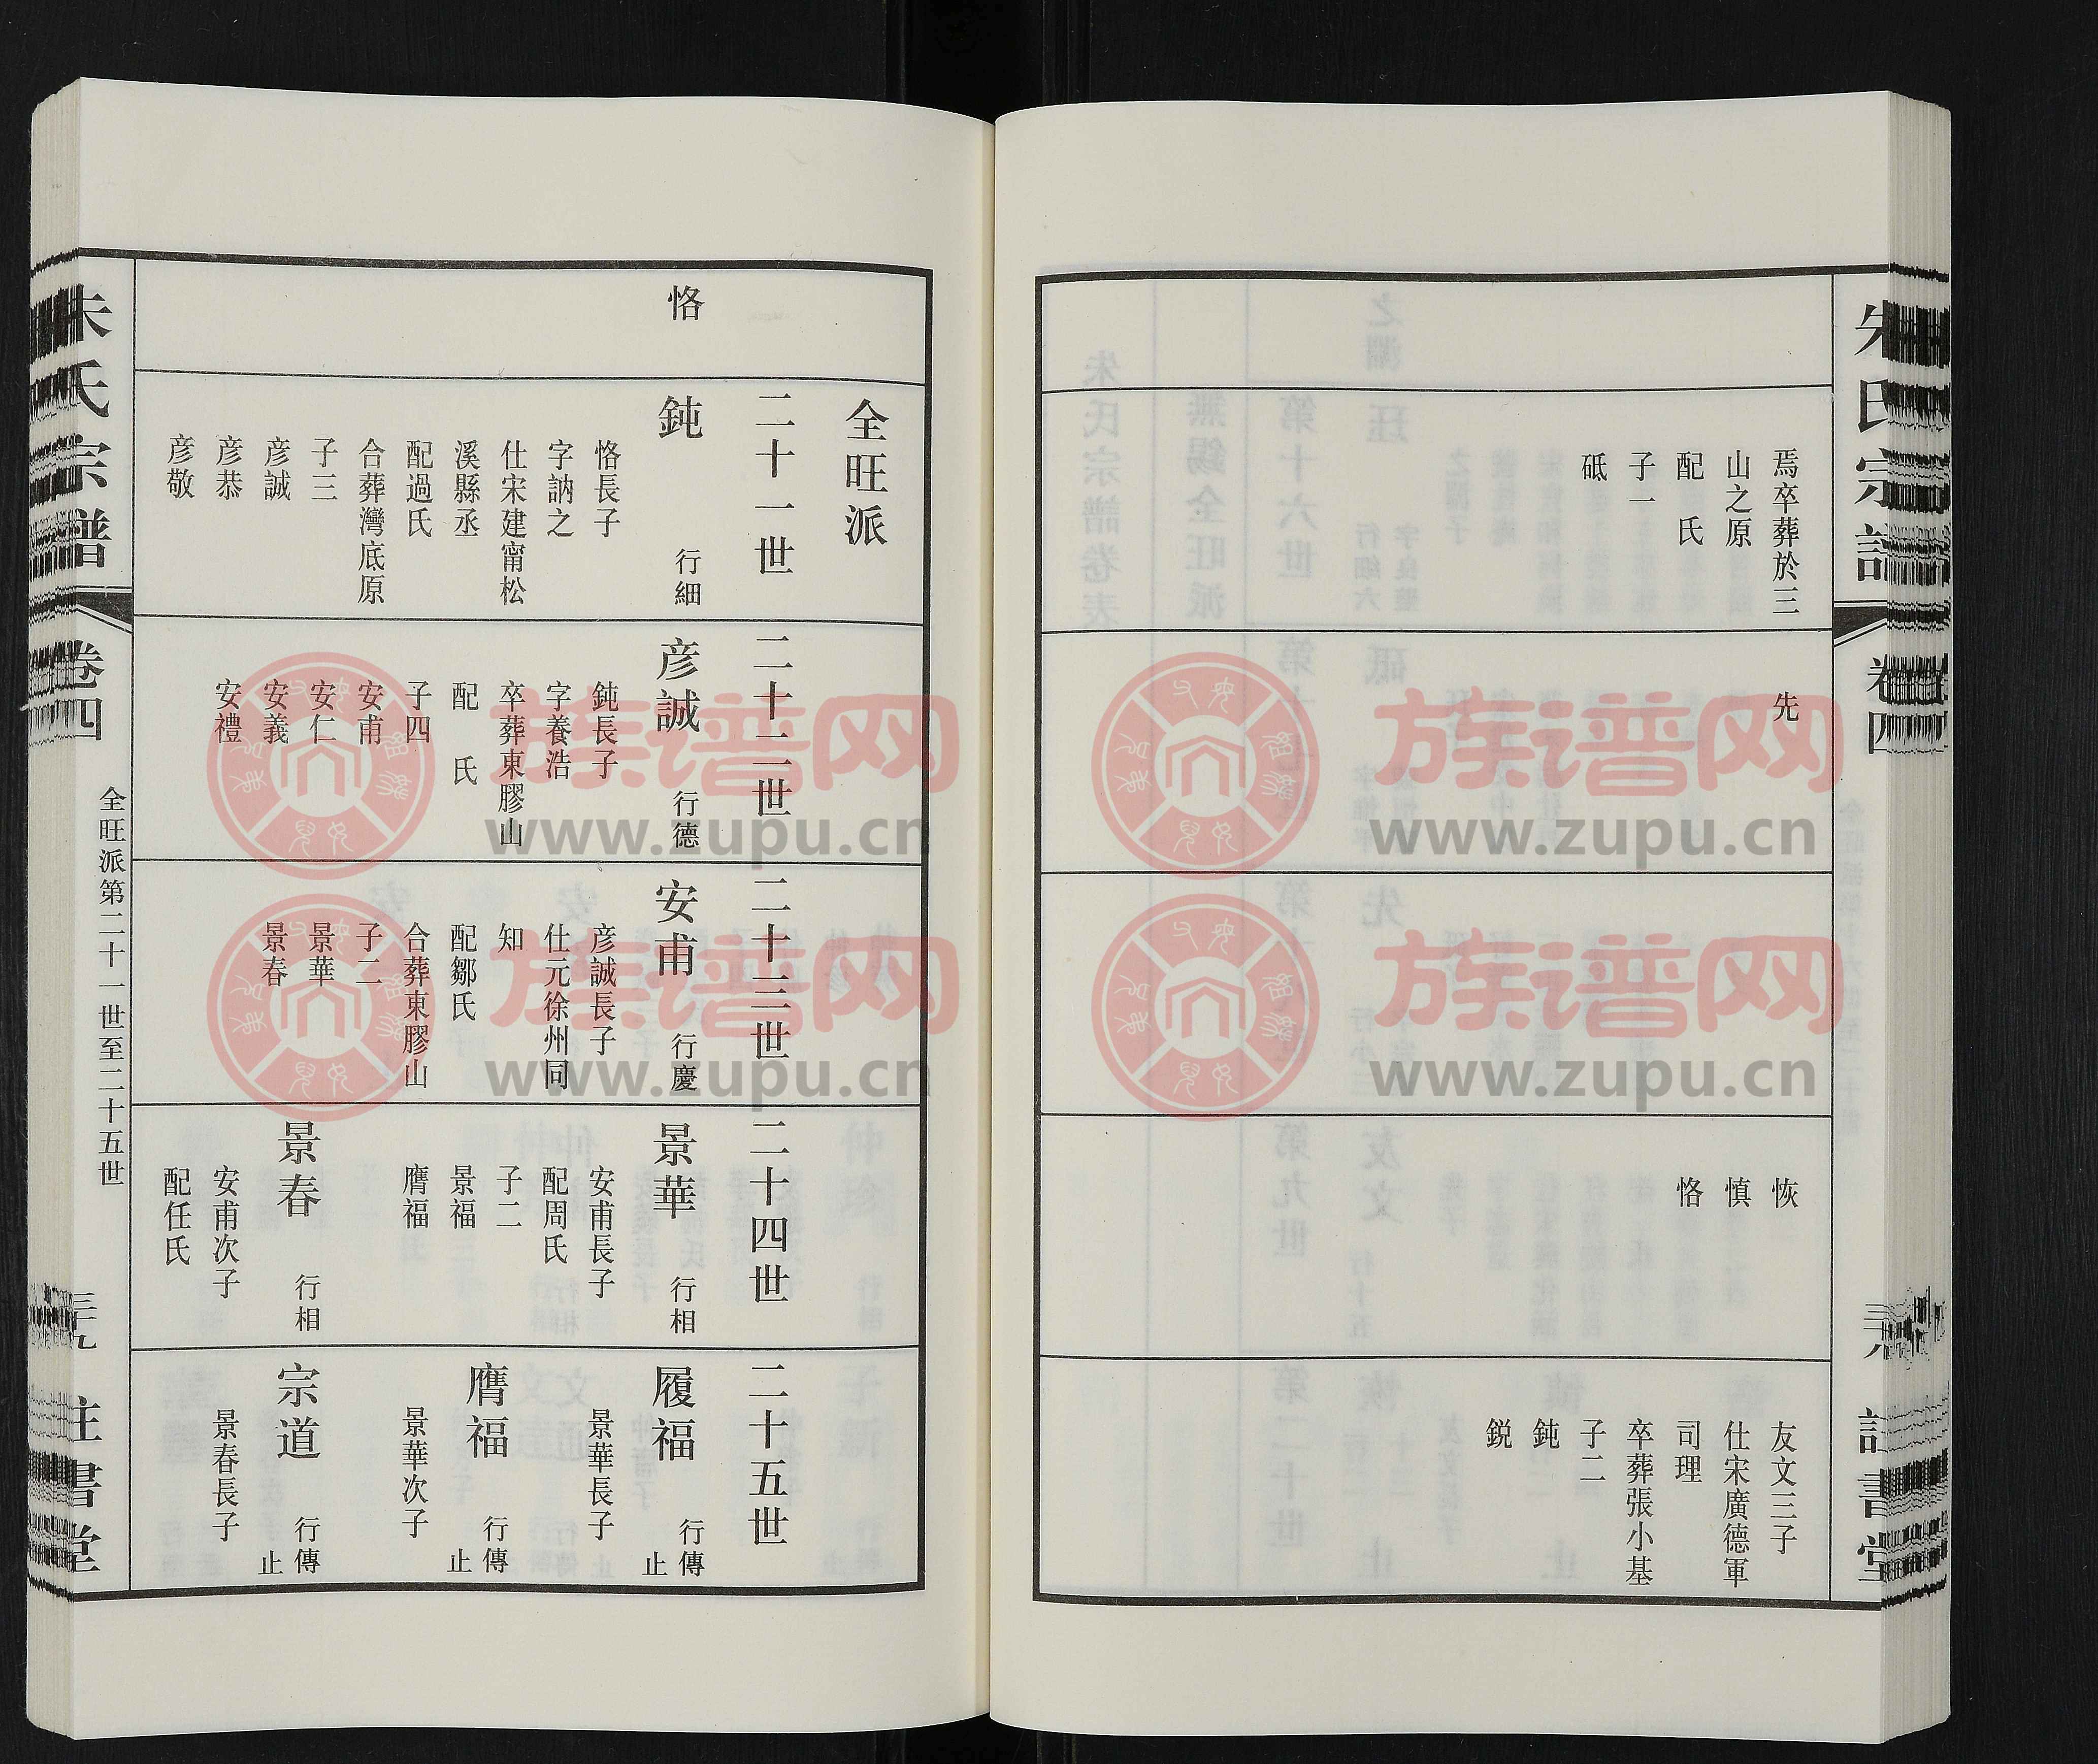 朱氏宗譜
卷四
焉卒葬於三
山之原
配　氏
子一
砥
先
恢
慎
恪
友文三子
仕宋廣德軍
司理
卒葬張小基
子二
鈍
鋭
全旺派
恪
二十一世
鈍
行細
恪長子
字訥之
仕宋建甯松
溪縣丞
配過氏
合葬灣底原
子三
彦誠
彦恭
彦敬
二十二世
彦誠
行德
鈍長子
字養浩
卒葬東膠山
配　氏
子四
安甫
安仁
安義
安禮
二十三世
安甫
行慶
彦誠長子
仕元徐州同
知
配鄒氏
合葬東膠山
子二
景華
景春
二十四世
景華
行相
安甫長子
配周氏
子二
景福
膺福
景春
行相
安甫次子
配任氏
二十五世
履福
行傳
景華長子
止
膺福
行傳
景華次子
止
宗道
行傳
景春長子
止
朱氏宗譜
卷四
全旺派第二十一世至二十五世
族谱网
www.zupu.cn
族谱网
www.zupu.cn
族谱网
www.zupu.cn
族谱网
www.zupu.cn